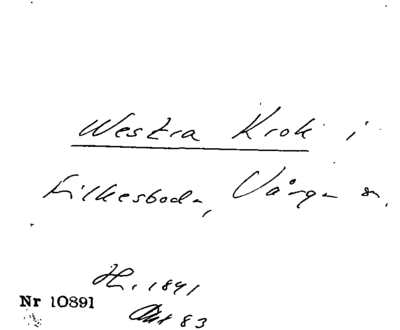 Westra Krok i
Silkesboda, Vånga sn.
H. 1891
Nr 10891
Akt 83